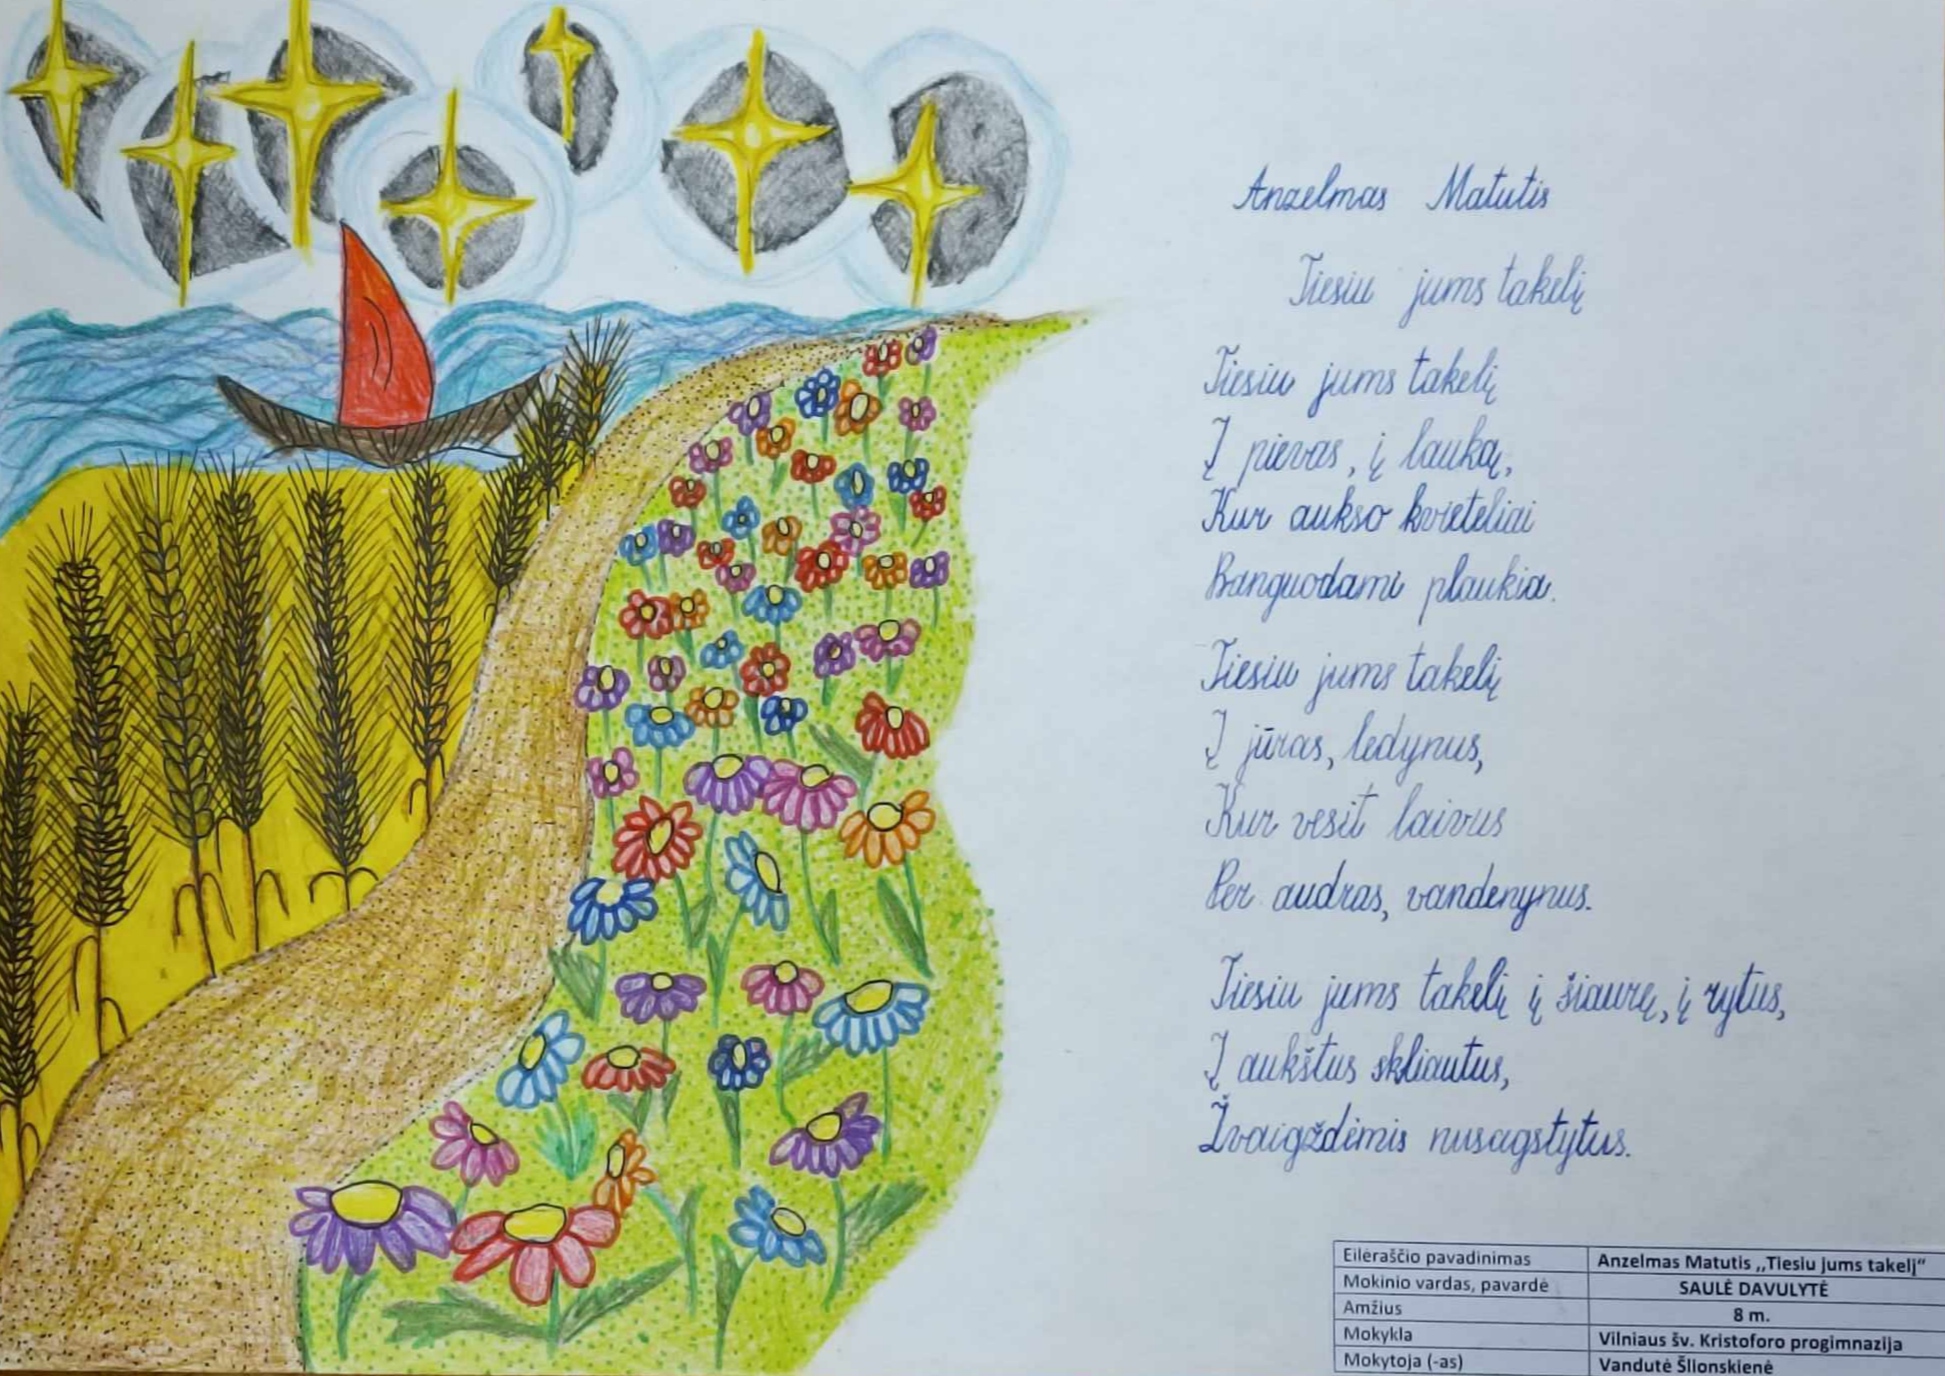 Anzelmas Matutis
Tiesiu jums takelį
Tiesiu jums takelį
Į pievas, į lauką,
Kur aukso kvieteliai
Banguodami plaukia.
Tiesiu jums takelį
Į jūras, ledynus,
Kur vesit laivus
Per audras, vandenynus.
Tiesiu jums takelį į šiaurę, į rytus,
Į aukštus skliautus,
Žvaigždėmis nusagstytus.
Eilėraščio pavadinimas Anzelmas Matutis ,,Tiesiu jums takelį“
Mokinio vardas, pavardė SAULĖ DAVULYTĖ
Amžius 8 m.
Mokykla Vilniaus šv. Kristoforo progimnazija
Mokytoja (-as) Vandutė Šlionskienė